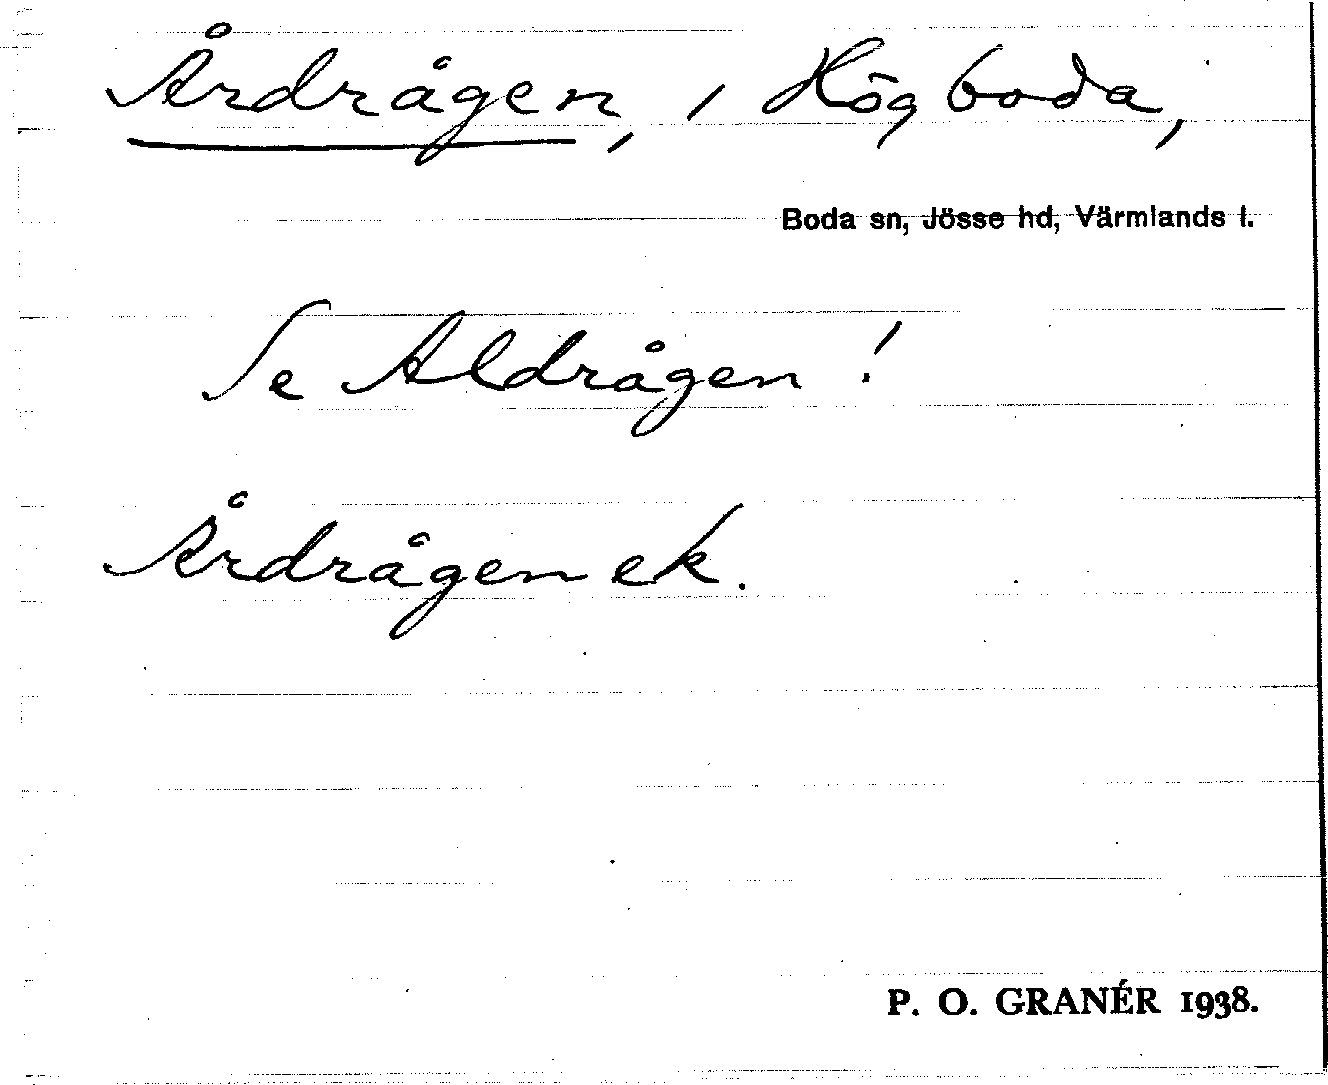 Årdrågen, i Högboda,
Boda sn, Jösse hd, Värmlands l.
Se Aldrågen!
Årdrågen ek.
P. O. GRANÉR 1938.